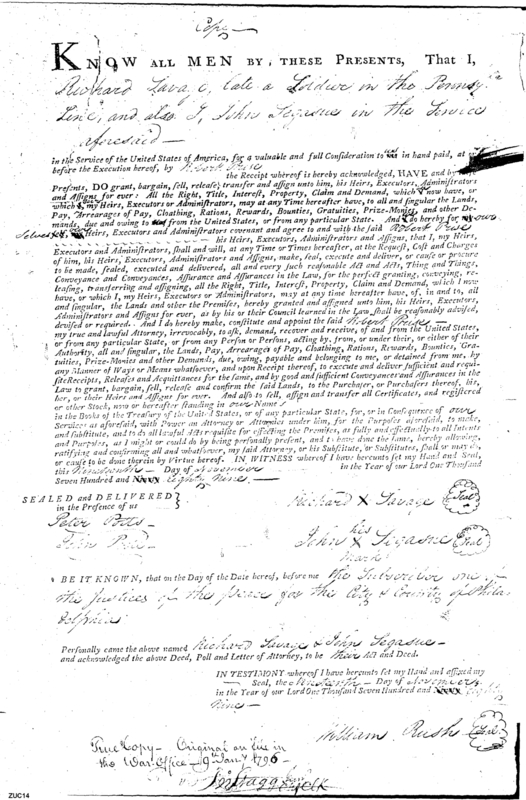 Copy
KNOW ALL MEN BY THESE PRESENTS, That I,
Richard Savage, late a Soldier in the Pennsyl.
Line, and also I, John Segasue in the Service
aforesaid —
in the Service of the United States of America, for a valuable and full Consideration to in hand paid, at
before the Execution hereof, by Robert
the Receipt whereof is hereby acknowledged, HAVE and by
Presents, DO grant, bargain, sell, release, transfer and assign unto him, his Heirs, Executors, Administrators
and Assigns for ever: All the Right, Title, Interest, Property, Claim and Demand, which now have, or
which my Heirs, Executors or Administrators, may at any Time hereafter have, to all and singular the Lands,
Pay, Arrearages of Pay, Cloathing, Rations, Rewards, Bounties, Gratuities, Prize-Monies, and other De-
mands, due and owing to from the United States, or from any particular State. And do hereby for our
Selves Heirs, Executors and Administrators covenant and agree to and with the said Robert
his Heirs, Executors, Administrators and Assigns, that I, my Heirs,
Executors and Administrators, shall and will, at any Time or Times hereafter, at the Request, Cost and Charges
of him, his Heirs, Executors, Administrators and Assigns, make, seal, execute and deliver, or cause or procure
to be made, sealed, executed and delivered, all and every such reasonable Act and Acts, Thing and Things,
Conveyance and Conveyances, Assurance and Assurances in the Law, for the perfect granting, conveying, re-
leasing, transferring and assigning, all the Right, Title, Interest, Property, Claim and Demand, which I now
have, or which I, my Heirs, Executors or Administrators, may at any time hereafter have of, in and to, all
and singular, the Lands and other the Premises, hereby granted and assigned unto him, his Heirs, Executors,
Administrators and Assigns for ever, as by his or their Council learned in the Law shall be reasonably advised,
devised or required. And I do hereby make, constitute and appoint the said Robert
my true and lawful Attorney, irrevocably, to ask, demand, recover and receive, of and from the United States,
or from any particular State, or from any Person or Persons, acting by, from, or under their, or either of their
Authority, all and singular, the Lands, Pay, Arrearages of Pay, Cloathing, Rations, Rewards, Bounties, Gra-
tuities, Prize-Monies and other Demands, due, owing, payable and belonging to me, or detained from me, by
any Manner of Ways or Means whatsoever, and upon Receipt thereof, to execute and deliver sufficient and requi-
site Receipts, Releases and Acquittances for the same, and by good and sufficient Conveyances and Assurances in the
Law to grant, bargain, sell, release and confirm the said Lands, to the Purchaser, or Purchasers thereof, his,
her, or their Heirs and Assigns for ever. And also to sell, assign and transfer all Certificates, and registered
or other Stock, now or hereafter standing in our Name
in the Books of the Treasury of the United States, or of any particular State, for, or in Consequence of our
Services as aforesaid, with Power an Attorney or Attornies under him, for the Purposes aforesaid, to make,
and substitute, and to do all lawful Acts requisite for effecting the Premises, as fully and effectually to all Intents
and Purposes, as I might or could do by being personally present, and to have done the same, hereby allowing,
ratifying and confirming all and whatsoever, my said Attorney, or his Substitute, or Substitutes, shall or may do,
or cause to be done therein by Virtue hereof. IN WITNESS whereof I have hereunto set my Hand and Seal,
this Nineteenth — Day of November in the Year of our Lord One Thousand
Seven Hundred and eighty Nine. —
SEALED and DELIVERED
in the Presence of us
Richard X Savage Seal
Peter
John
his
John X Segasue Seal
mark
BE IT KNOWN, that on the Day of the Date hereof, before me the Subscriber one of
the Justices of the peace for the City & County of Phila
delphia
Personally came the above named Richard Savage & John Segasue —
and acknowledged the above Deed, Poll and Letter of Attorney, to be their Act and Deed.
IN TESTIMONY whereof I have hereunto set my Hand and affixed my
Seal, the Nineteenth — Day of November
in the Year of our Lord One Thousand Seven Hundred and Eighty
Nine —
William Rush Seal
True Copy — Original on file in
the War Office — 9th Jany 1796
ZUC14